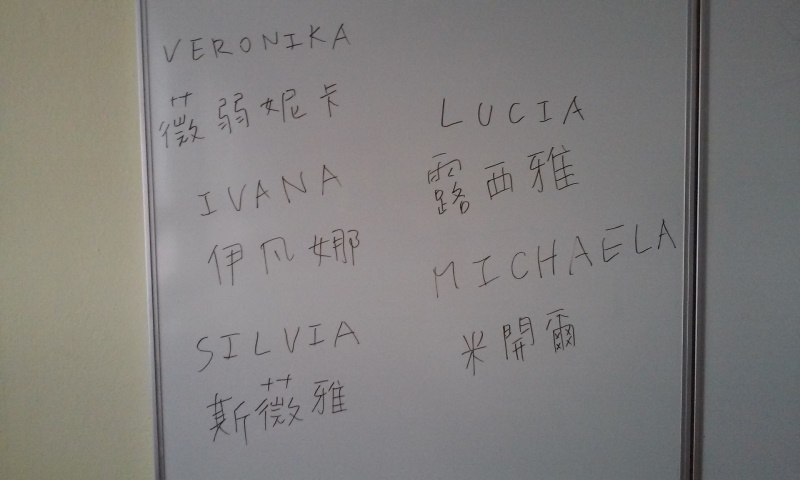 VERONIKA
薇弱妮卡
IVANA
伊凡娜
SILVIA
斯薇雅
LUCIA
露西雅
MICHAELA
米開爾